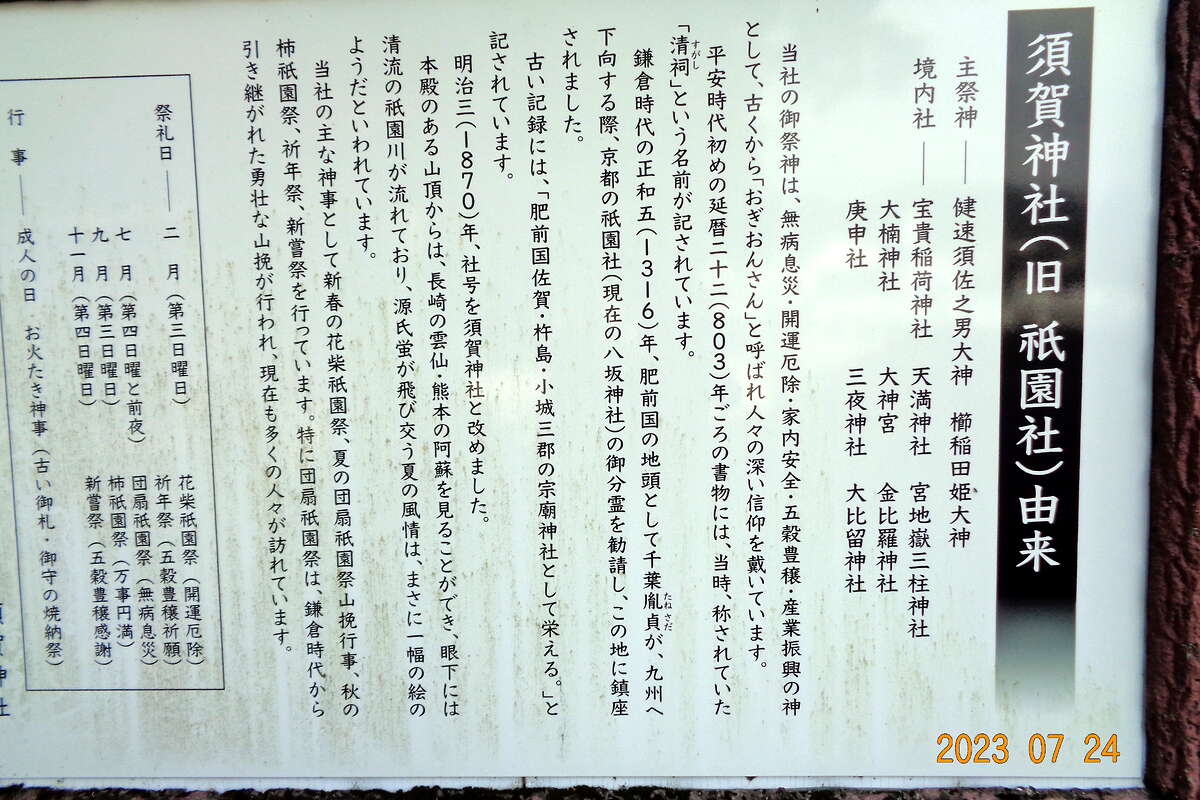 須賀神社(旧 祇園社)由来
主祭神――健速須佐之男大神 櫛稲田姫大神
境内社――宝貴稲荷神社 天満神社 宮地嶽三柱神社
大楠神社 大神宮 金比羅神社
庚申社 三夜神社 大比留神社
当社の御祭神は、無病息災・開運厄除・家内安全・五穀豊穣・産業振興の神
として、古くから「おぎおんさん」と呼ばれ人々の深い信仰を戴いています。
平安時代初めの延暦二十二(803)年ごろの書物には、当時、称されていた
「清祠」という名前が記されています。
すがし
鎌倉時代の正和五(1316)年、肥前国の地頭として千葉胤貞が、九州へ
たねさだ
下向する際、京都の祇園社(現在の八坂神社)の御分霊を勧請し、この地に鎮座
されました。
古い記録には、「肥前国佐賀・杵島・小城三郡の宗廟神社として栄える。」と
記されています。
明治三(1870)年、社号を須賀神社と改めました。
本殿のある山頂からは、長崎の雲仙・熊本の阿蘇を見ることができ、眼下には
清流の祇園川が流れており、源氏蛍が飛び交う夏の風情は、まさに一幅の絵の
ようだといわれています。
当社の主な神事として新春の花柴祇園祭、夏の団扇祇園祭山挽行事、秋の
柿祇園祭、祈年祭、新嘗祭を行っています。特に団扇祇園祭は、鎌倉時代から
引き継がれた勇壮な山挽が行われ、現在も多くの人々が訪れています。
祭礼日――二 月(第三日曜日) 花柴祇園祭(開運厄除)
祈年祭(五穀豊穣祈願)
七 月(第四日曜と前夜) 団扇祇園祭(無病息災)
九 月(第三日曜日) 柿祇園祭(万事円満)
十一月(第四日曜日) 新嘗祭(五穀豊穣感謝)
行 事――成人の日 お火たき神事(古い御札・御守の焼納祭)
須賀神社
2023 07 24